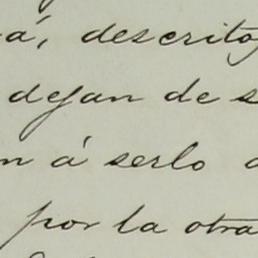 á, descrito
dejan de s
n á serlo
por la otra